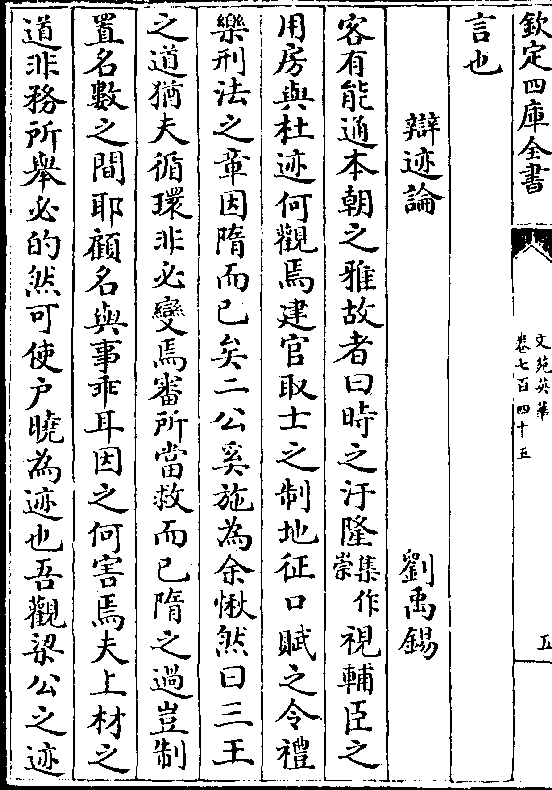 欽定四庫全書
文苑英華
卷七百四十五
五
言也
辯迹論
劉禹錫
客有能通本朝之雅故者曰時之汙隆集作崇視輔臣之
用房與杜迹何觀焉建官取士之制地征口賦之令禮
樂刑法之章因隋而已矣二公奚施為余愀然曰三王
之道猶夫循環非必變焉審所當救而已隋之過豈制
置名數之間耶顧名與事乖耳因之何害焉夫上材之
道非務所舉必的然可使户曉為迹也吾觀梁公之迹